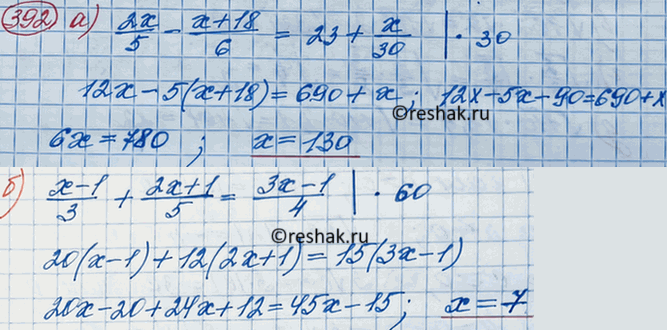 392 а) 2x/5 - x+18/6 = 23 + x/30 | · 30
12x - 5(x+18) = 690 + x ; 12x - 5x - 90 = 690 + x
©reshak.ru
6x = 780 ; x = 130
б) x-1/3 + 2x+1/5 = 3x-1/4 | · 60
©reshak.ru
20(x-1) + 12(2x+1) = 15(3x-1)
20x - 20 + 24x + 12 = 45x - 15 ; x = 7